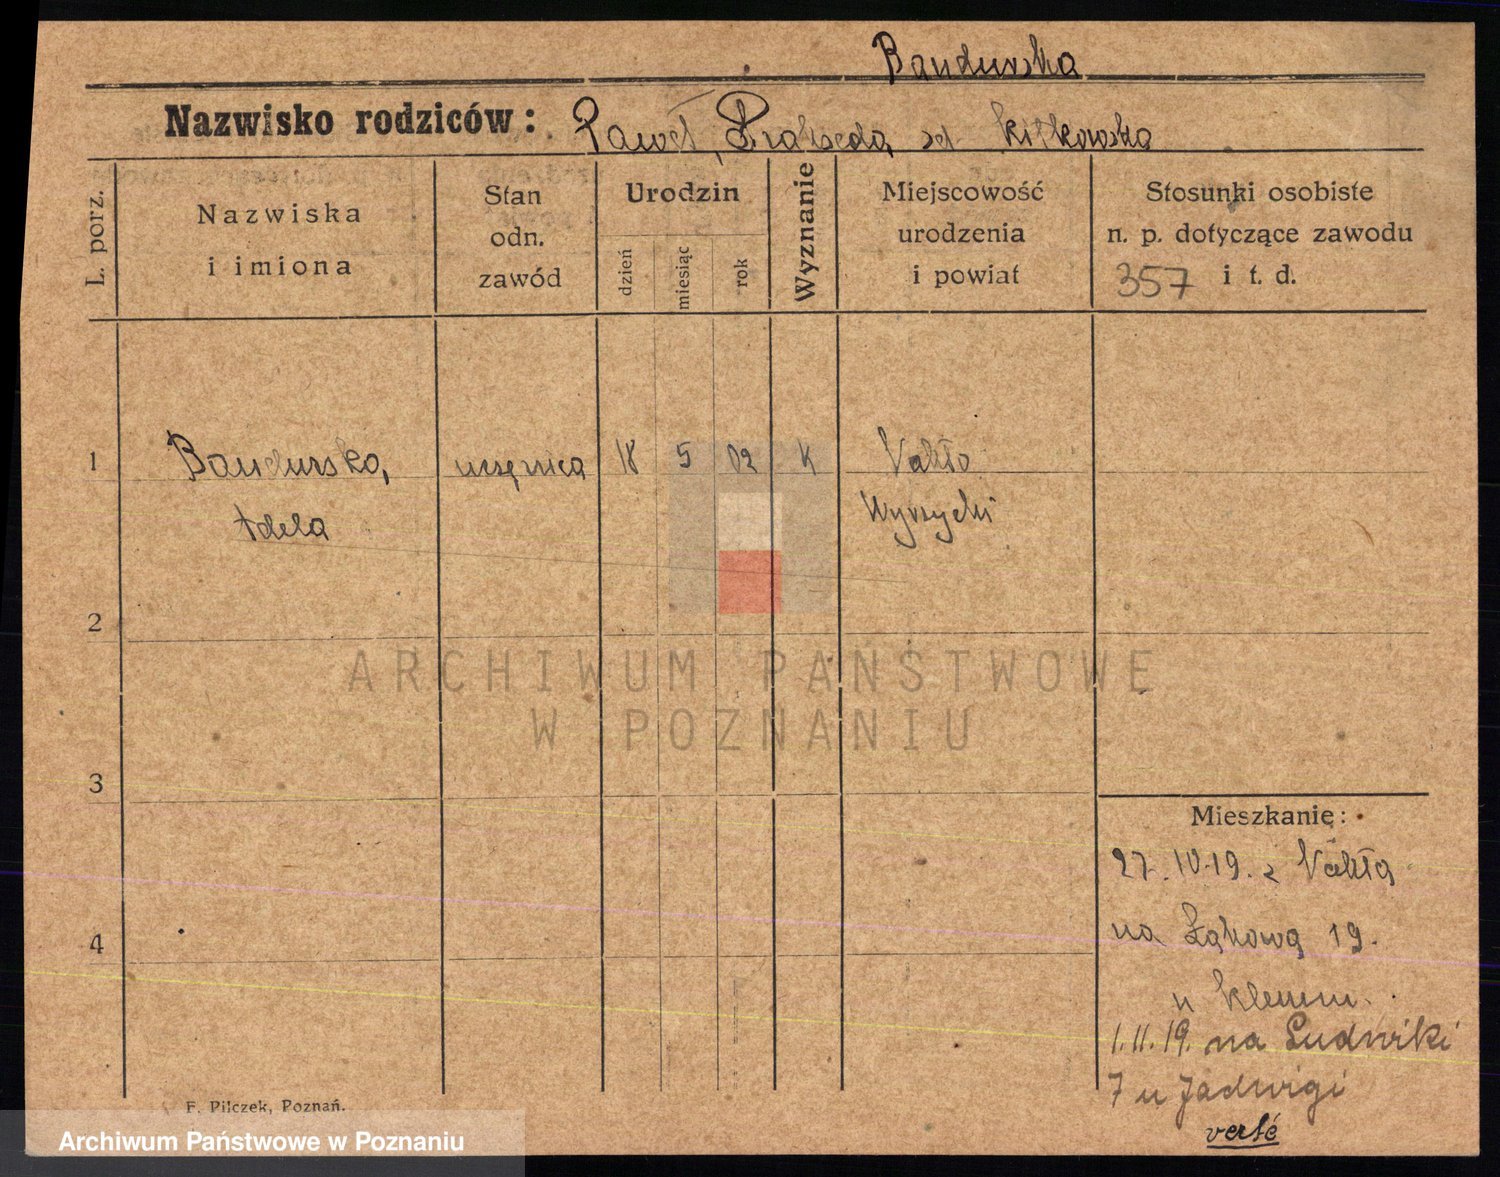 Bandurska
Nazwisko rodziców: Paweł, Prakseda, od Kitkowska
L. porz.
Nazwiska
i imiona
Stan
odn.
zawód
Urodzin
dzień
miesiąc
rok
Wyznanie
Miejscowość
urodzenia
i powiat
Stosunki osobiste
n. p. dotyczące zawodu
357 i t. d.
1 Bandurska, uczęnica 18 5 02 K Nakło
Adela Wyrzycki
2
3
4
Mieszkanie:
27.IV.19. z Nakła
na Łąkową 19.
u Klemm.
1.11.19. na Ludwiki
7 u Jadwigi
verte
F. Pilczek, Poznań.
ARCHIWUM PAŃSTWOWE
W POZNANIU
Archiwum Państwowe w Poznaniu